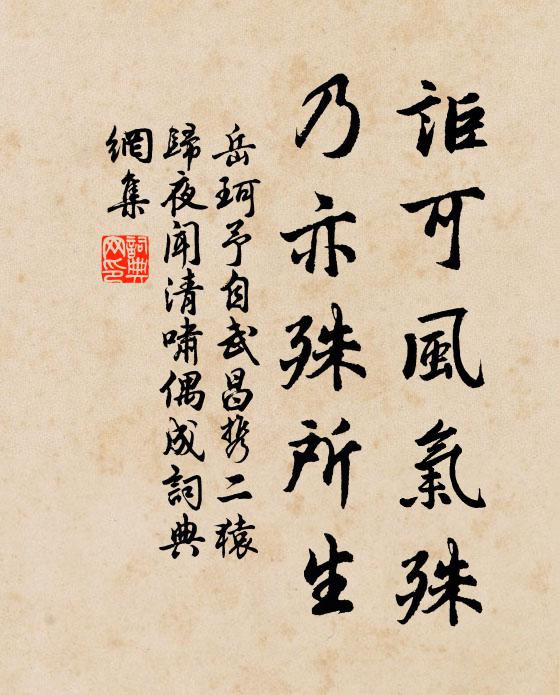 詎可風氣殊
乃亦殊所生
岳珂予自武昌携二猿
歸夜聞清嘯偶成詞典
網集
詞典網印